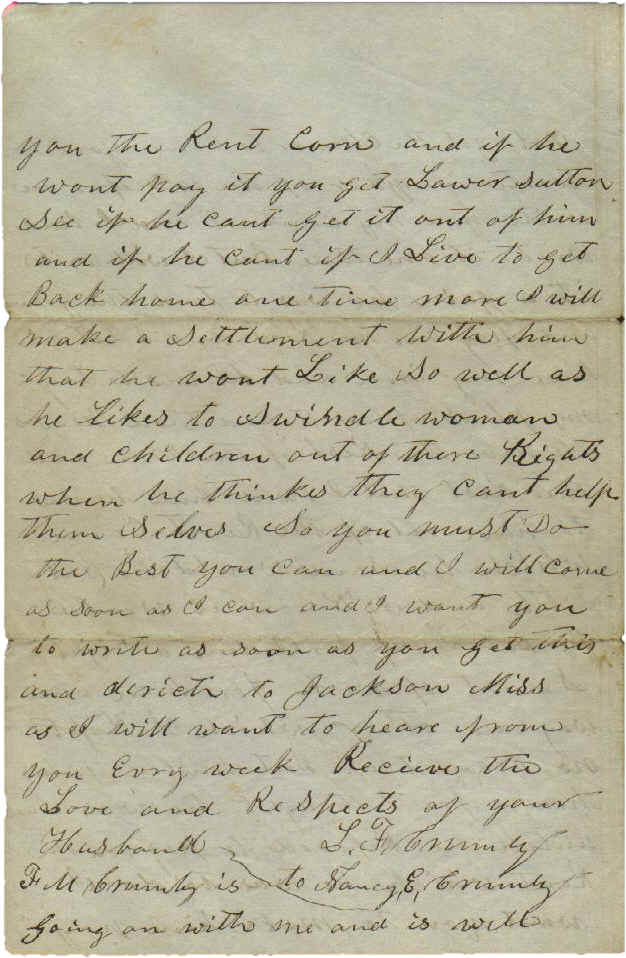 you the Rent Corn and if he
wont pay it you get Lawer Sutton
See if he cant get it out of him
and if he cant if I Live to get
Back home one time more I will
make a Settlement With him
that he wont Like So well as
he likes to Swindle woman
and children out of there Rights
when he thinkes they cant help
them Selves So you must Do
the Best you can and I will come
as soon as I can and I want you
to write as soon as you get this
and directh to Jackson Miss
as I will want to heare from
you Evry week Recieve the
Love and Respects of your
Husband L. F. Crumly
F M Crumly is to Nancy, E, Crumly
going on with me and is well